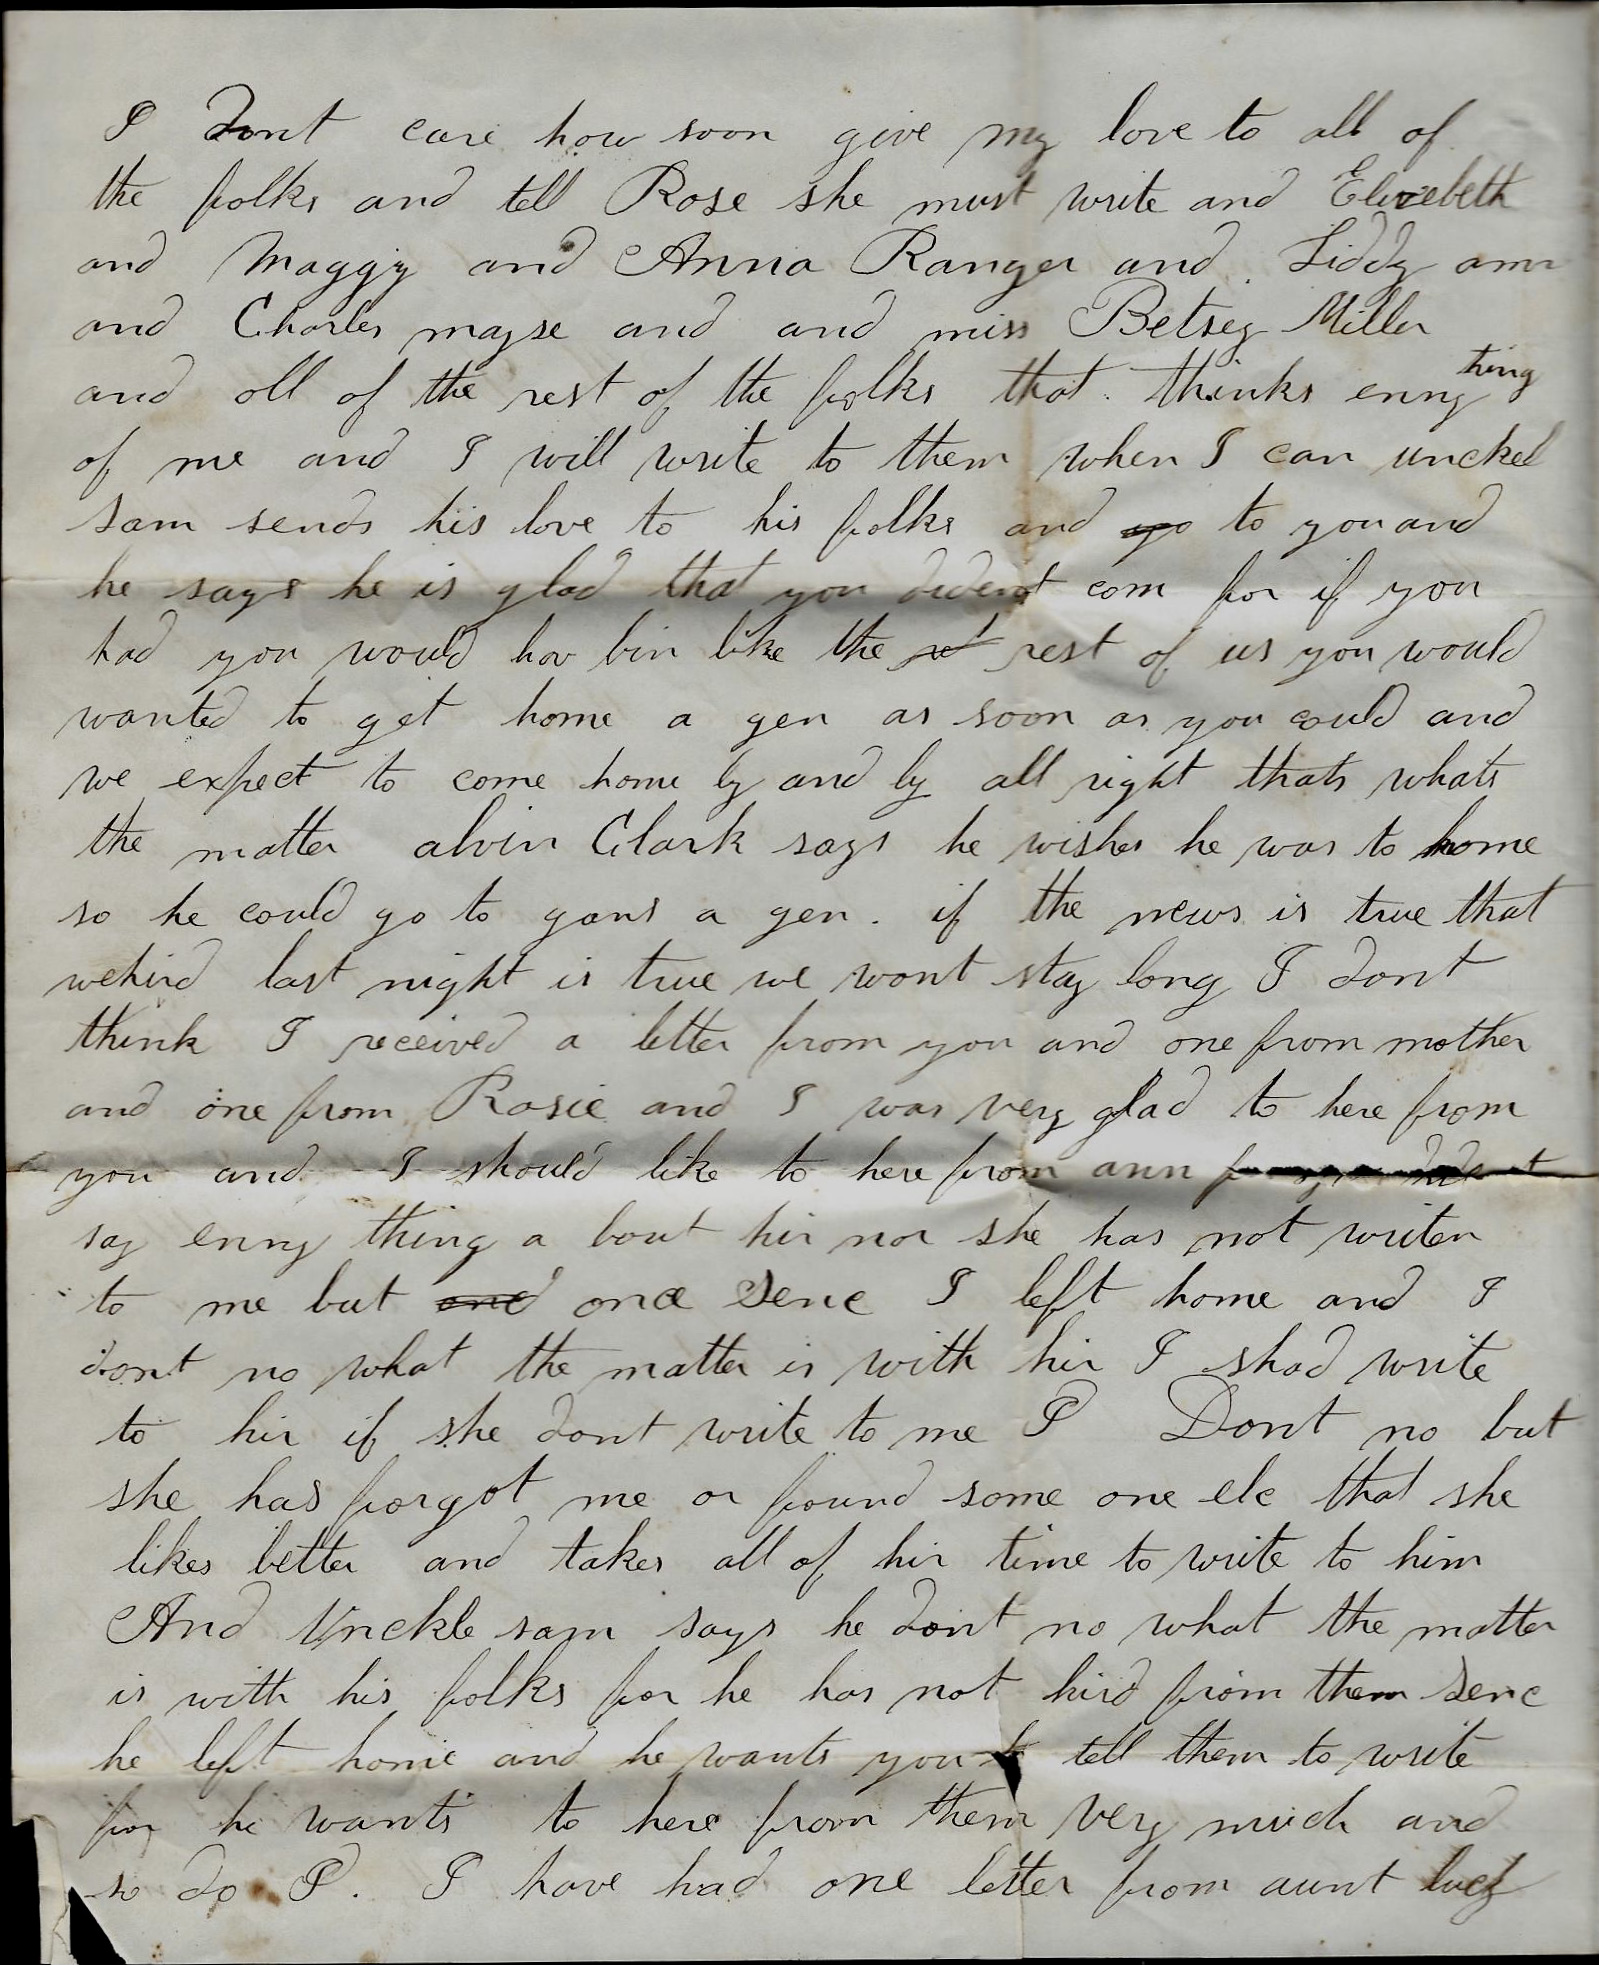 I Dont care how soon give my love to all of
the folks and tell Rose she must write and Elizebeth
and Maggy and Anna Ranger and Liddy ann
and Charles mayse and and miss Betsey Miller
and oll of the rest of the folks that thinks enny thing
of me and I will write to them when I can unckel
sam sends his love to his folks and yo to you and
he says he is glad that you dident com for if you
had you would hav bin like the rest of us you would
wanted to get home a gen as soon as you could and
we expect to come home by and by all right thats whats
the matter alvin Clark says he wishes he was to home
so he could go to gans a gen. if the news is true that
wehird last night is true we wont stay long I dont
think I received a letter from you and one from mother
and one from Rosie and I was very glad to here from
you and I should like to here from ann
say enny thing a bout hir nor she has not writen
to me but one once Senc I left home and I
dont no what the matter is with hir I shad write
to hir if she dont write to me I Dont no but
she has forgot me or found some one elc that she
likes better and takes all of hir time to write to him
And Unckle sam says he dont no what the matter
is with his folks for he has not hird from them Senc
he left home and he wants you to tell them to write
for he wants to here from them very much and
so do I. I have had one letter from aunt lucy